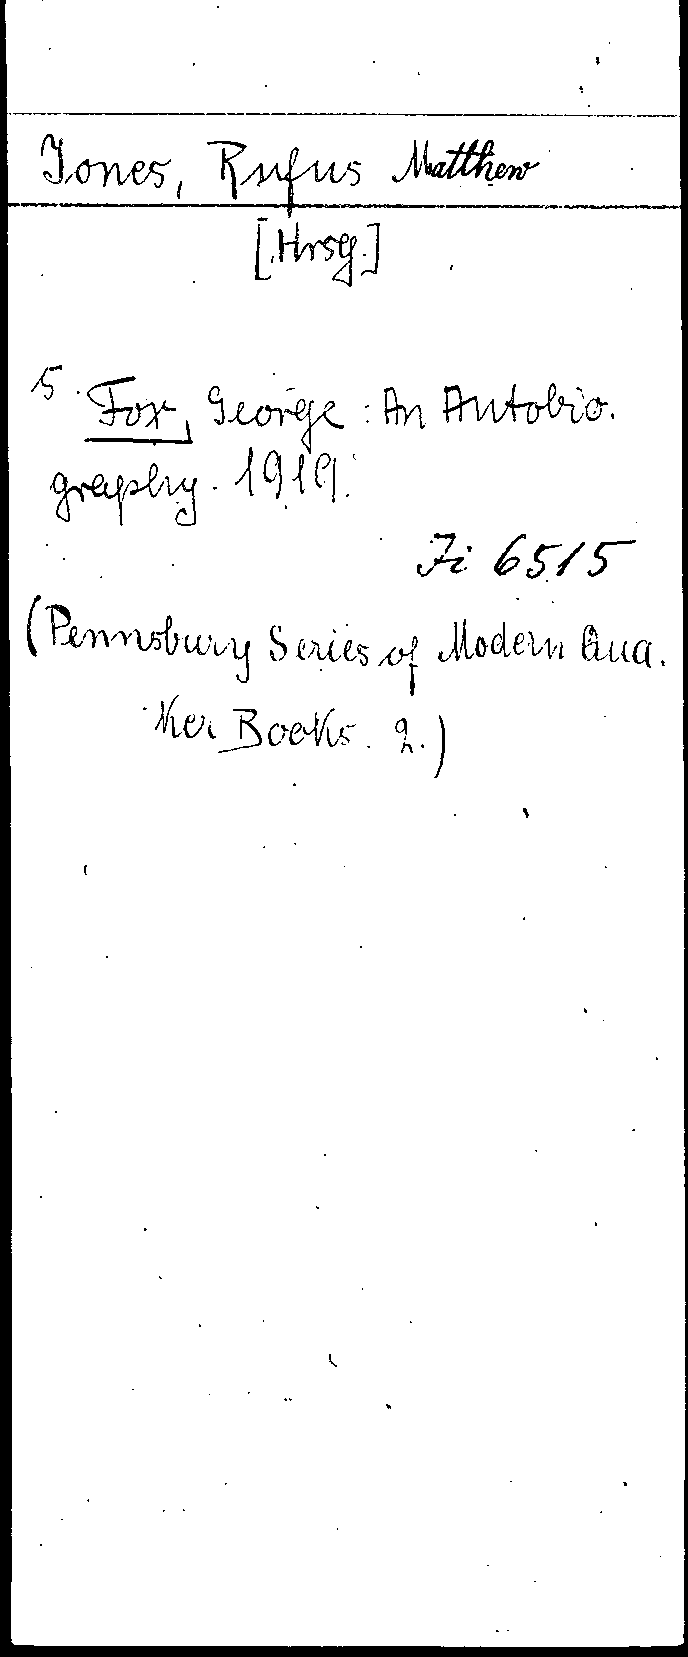 Jones, Rufus Matthew
[Hrsg.]
5. Fox, George: An Autobio-
graphy. 1919.
Fi 6515
(Pennsbury Series of Modern Qua-
ker Books. 2.)